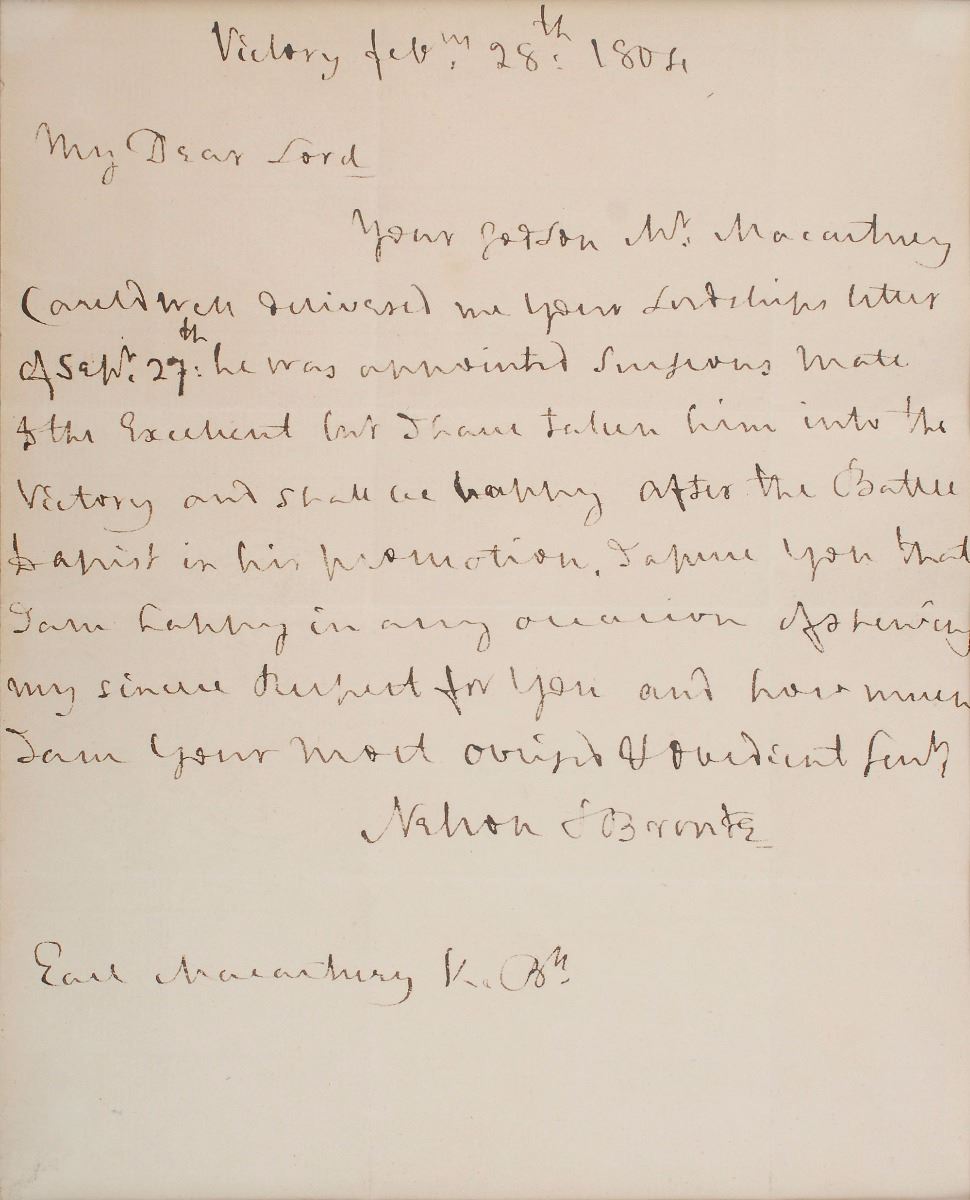 Victory feby. 28th: 1804
My Dear Lord
Your Godson Mr. Macartney
Cauldwell delivered me your Lordships letter
of Sept. 27th: he was appointed Surgeons Mate
of the Excellent but I have taken him into the
Victory and shall be happy after the Battle
to assist in his promotion, I assure you that
I am happy in any occasion of shewing
my sincere Respect for You and how much
I am Your most obliged & obedient Servt
Nelson & Bronte
Earl Macartney K. Bth.